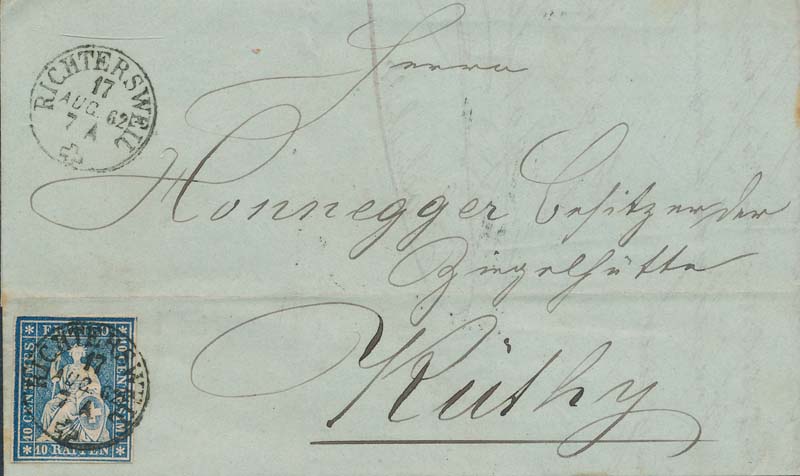 RICHTERSWEIL
17
AUG. 62
7 A
Herrn
Honnegger Besitzer der
Ziegelhütte
Rüthy
FRANCO
10 CENTIMES
10 CENTESIM
10 RAPPEN
RICHTERSWEIL
17
AUG. 62
7 A